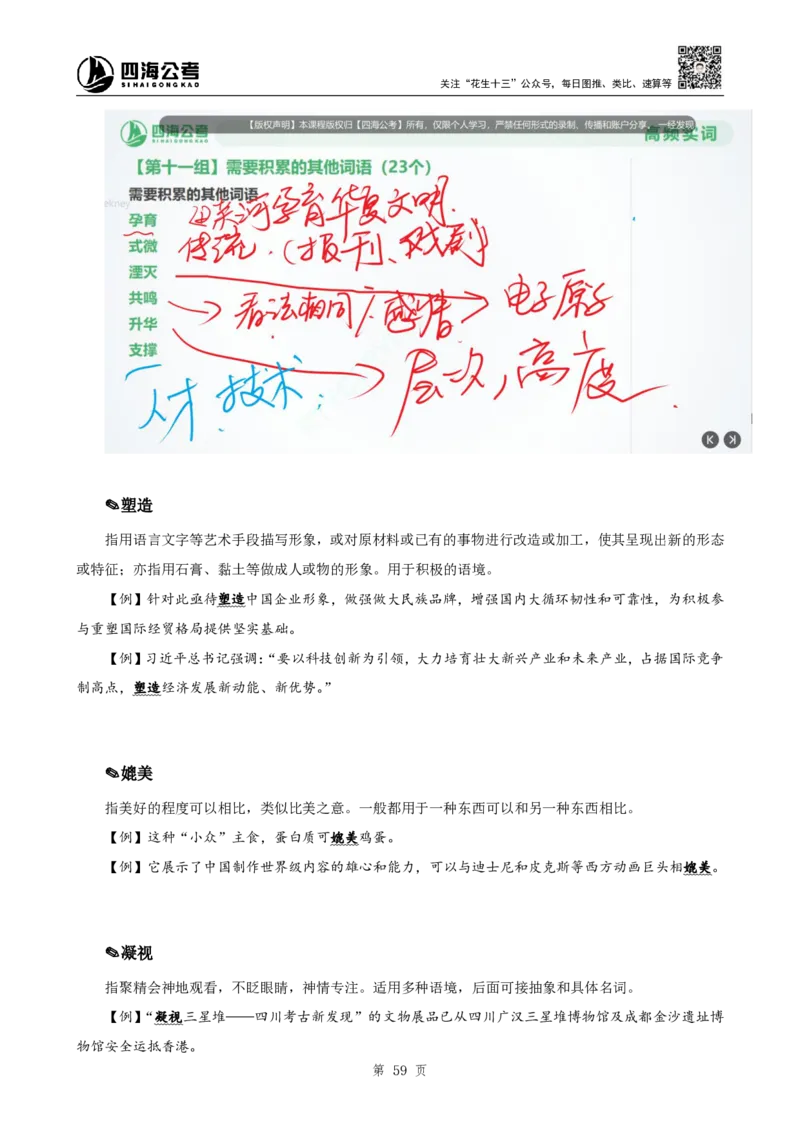 四海公考
SIHAIGONGKAO
关注“花生十三”公众号，每日图推、类比、速算等
四海公考
SIHAIGONGKAO
【版权声明】本课程版权归【四海公考】所有，仅限个人学习，严禁任何形式的录制、传播和账户分享，一经发现
高频实词
【第十一组】需要积累的其他词语（23个）
需要积累的其他词语
孕育
黄河孕育华夏文明.
式微
传统.（报刊、戏剧）
湮灭
电子原子
共鸣
看法相同/感情
升华
层次，高度.
支撑
人才 技术；
✎塑造
指用语言文字等艺术手段描写形象，或对原材料或已有的事物进行改造或加工，使其呈现出新的形态
或特征；亦指用石膏、黏土等做成人或物的形象。用于积极的语境。
【例】针对此亟待塑造中国企业形象，做强做大民族品牌，增强国内大循环韧性和可靠性，为积极参
与重塑国际经贸格局提供坚实基础。
【例】习近平总书记强调：“要以科技创新为引领，大力培育壮大新兴产业和未来产业，占据国际竞争
制高点，塑造经济发展新动能、新优势。”
✎媲美
指美好的程度可以相比，类似比美之意。一般都用于一种东西可以和另一种东西相比。
【例】这种“小众”主食，蛋白质可媲美鸡蛋。
【例】它展示了中国制作世界级内容的雄心和能力，可以与迪士尼和皮克斯等西方动画巨头相媲美。
✎凝视
指聚精会神地观看，不眨眼睛，神情专注。适用多种语境，后面可接抽象和具体名词。
【例】“凝视三星堆——四川考古新发现”的文物展品已从四川广汉三星堆博物馆及成都金沙遗址博
物馆安全运抵香港。
第 59 页